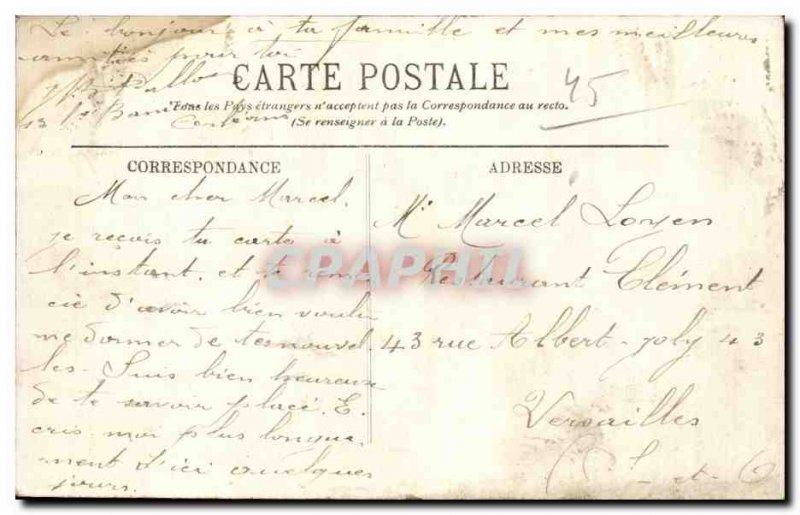 Le bonjour à ta famille et mes meilleures
amitiés pour toi
CARTE POSTALE
45
Tous les Pays étrangers n'acceptent pas la Correspondance au recto.
(Se renseigner à la Poste).
CORRESPONDANCE
Mon cher Marcel,
je reçois ta carte à
l'instant, et te remer
cie d'avoir bien voulu
me donner de tes nouvel
les. Suis bien heureuse
de te savoir placé. E.
cris moi plus longue.
ment d'ici quelques
jours.
ADRESSE
Mr Marcel Loyen
Restaurant Clément
43 rue Albert-Joly 43
Versailles
(S. et O
CPAPHIL